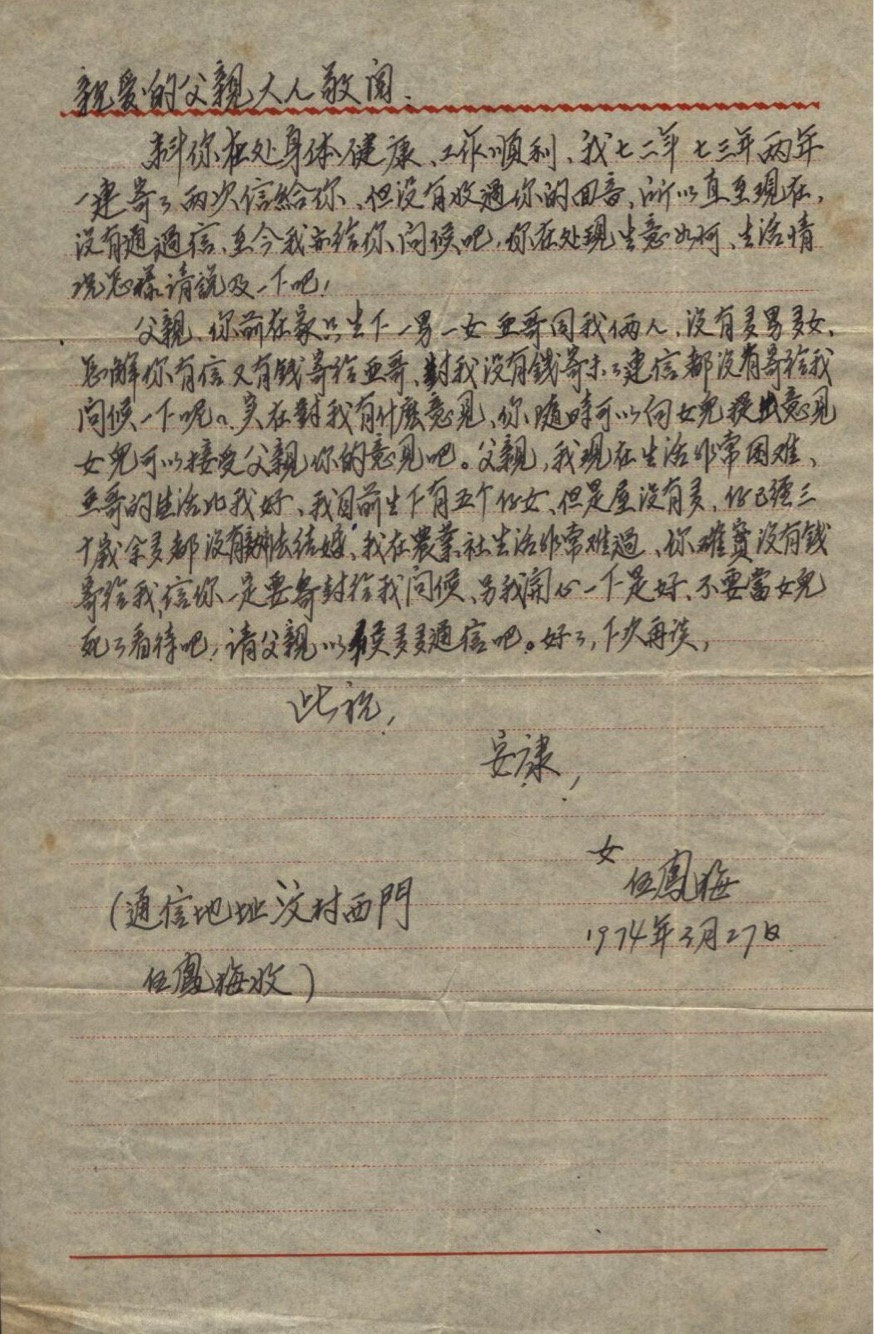 親爱的父親大人敬阅.
料你在处身体健康、工作順利、我七二年七三年两年
一連寄了两次信給你、但没有收過你的回音、所以直至現在,
没有通過信、至今我亦給你问候吧,你在处現生意如何、生活情
况怎樣请說及一下吧!
父親、你前在家只生下一男一女亚哥同我俩人,没有多男多女、
怎解你有信又有钱寄给亚哥、對我没有錢寄、連信都没有寄给我
问候一下呢?实在對我有什麽意見、你随時可以向女兒提出意見
女兒可以接受父親你的意見吧。父親,我現在生活非常困难、
亚哥的生活比我好、我目前生下有五个仔女、但是屋没有多,仔已經三
十歲余多都没有去结婚,我在農業社生活非常难過、你確實没有钱
寄给我,信你一定要寄封给我问候、另我開心一下是好、不要當女兒
死了看待吧,请父親以後多多通信吧。好了,下次再谈,
此祝,
安康,
女
伍鳳梅
1974年3月27日
(通信地址汶村西門
伍鳳梅收)